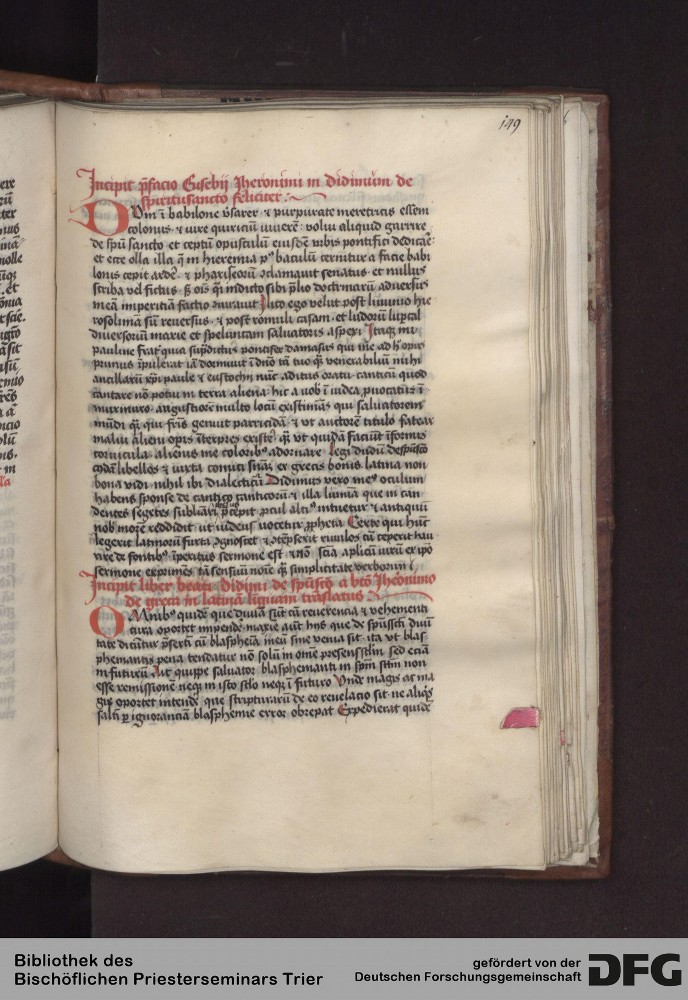 149
Incipit p̄facio Eusebij Iheronimi in didimum de
spiritusancto feliciter
Dum ī babilone v̄sarer · ⁊ purpurate meretricis essem
colonus · ⁊ iure quiritū viuerē: volui aliquid garrire
de spū sancto · et ceptū opusculū eiusdē vrbis pontifici dedicare:
et ecce olla illa q̄ in hieremia pꝰ baculū cernitur a facie babi
lonis cepit ardē · ⁊ phariseorū ↄclamauit senatus · et nullus
scriba vel fictus · sꝫ oīs q̄si indicto sibi p̄lio doctrinarū aduersus
meā imperitiā factio ↄiurauit Ilico ego velut post liminio hie
rosolimā sū reuersus · ⁊ post romuli casam · et ludorū lup̄cal
diuersoriū marie et speluncam saluatoris aspexi Itaqꝫ mi
pauline frat̄ quia sup̄dictus pontifex damasus qui me ad h̓ opus
primus īpulerat iā dormiuit ī dn̄o tā tuo qꝫ venerabiliū mihi
ancillarū xp̄i paule ⁊ eustochij nūc adiutus oratu · canticū quod
cantare nō potui in terra aliena: hic a uob̄ ī iudea ꝓuocatus ī
murmuro · augustiorē multo locū existimās qui saluatorem
mūdi qꝫ qui fr̄is genuit parricidā · ⁊ vt auctorē titulo fatear
malui alieni opis īterpres existē · qꝫ vt quidā faciūt īformis
cornicula · alienis me coloribꝰ adornare Legi dudū de spūscō
cuiꝰdā libellos ⁊ iuxta comici sniāꝫ ex grecis bonis · latina non
bona vidi · nihil ibi dialecticū Didimus vero meꝰ oculum
habens sponse de cantico canticorū · ⁊ illa lumīa que in can
dentes segetes subliāri p̄cepit · procul altiꝰ intuetur ⁊ antiquū
nob̄ morē reddidit · ut videns uocetur ꝓpheta Certe qui hūc
legerit latinorū furta ↄgnoscet · ⁊ ↄtēpserit riuulos cū ceperit hau
rire de fontibꝰ īperitus sermone est ⁊ nō scīa aplicū virū ex ipo
sermone exprimēs tā sensuū noīe qꝫ simplicitate verborum
Incipit liber beati Didimi de spūscō a bt̄o Iheronimo
de greco in latinā linguam trāslatus
Omnibꝰ quidē que diuina sūt cū reuerencia ⁊ vehementi
cura oportet inpendē · maxie aūt hijs que de spūsscti diui
tate dicūtur p̄serti cū blasphemia ī eū sine venia sit · ita vt blas
phemantis pena tendatur nō solū in omē presens sclm sed eciā
in futurū Ait quippe saluator blasphemanti in spm̄ sctm non
esse remissionē neqꝫ in isto sclo neqꝫ ī futuro Vnde magis ac ma
gis oportet intendē · que scripturarū de eo reuelacio sit · ne aliqꝫ
saltē ꝑ ignoranciā blasphemie error obrepat Expedierat quidē
Bibliothek des
Bischöflichen Priesterseminars Trier
gefördert von der
Deutschen Forschungsgemeinschaft
DFG